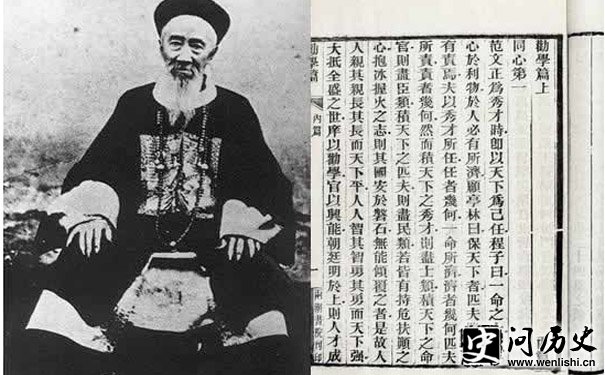 勸學篇上
同心第一
范文正爲秀才時卽以天下爲己任程子曰一命之
心於利物於人必有所濟顧亭林曰保天下者匹夫
有責焉夫以秀才所任任者幾何一命所濟濟者幾何匹夫
所責責者幾何然而積天下之秀才則盡士類積天下之命
官則盡臣類積天下之匹夫則盡民類若皆有持危扶顚之
心抱冰握火之志則其國安於磐石無能傾覆之者是故人
人親其親長其長而天下平人人智其智勇其勇而天下強
大抵全盛之世庠以勸學官以興能朝廷明於上則人才成
勸學篇
內篇
一
兩湖書院刊印
问历史
www.wenlishi.cn